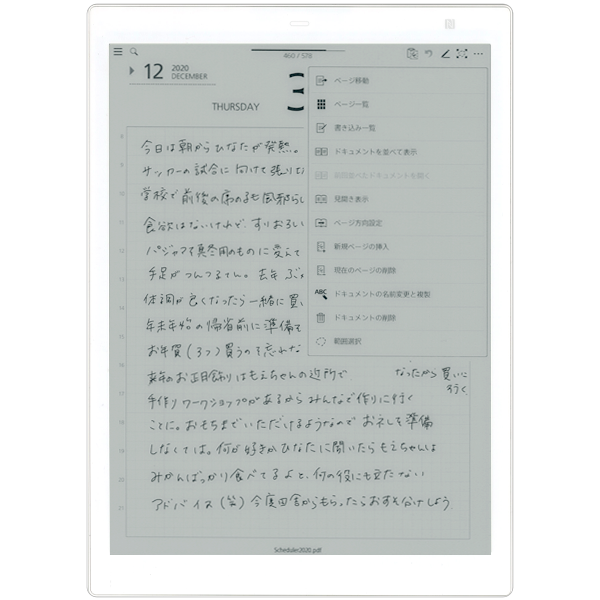 460 / 578
12
2020
DECEMBER
THURSDAY
ページ移動
ページ一覧
書き込み一覧
ドキュメントを並べて表示
前回並べたドキュメントを開く
見開き表示
ページ方向設定
新規ページの挿入
現在のページの削除
ABC ドキュメントの名前変更と複製
ドキュメントの削除
範囲選択
今日は朝からひなたが発熱。
サッカーの試合に向けて張り
学校で前後の席の子も風邪らし
食欲はないけれど、すりおろしい
パジャマを真冬用のものに変えて
手足がつんつるてん。去年
体調が良くなったら一緒に買
年末年始の帰省前に準備を
お年賀(3つ)買うのを忘れな
来年のお正月飾りはもえちゃんの近所で
なったから買いに
行く
手作りワークショップがあるからみんなで作りに行く
ことに。おもちまでいただけるようなので お礼を準備
しなくては。何が好きかひなたに聞いたらもえちゃんは
みかんばっかり食べてるよと、何の役にも立たない
アドバイス(笑)今度田舎からもらったらおすそ分けしよう
8
9
10
11
12
13
14
15
16
17
18
19
20
21
Scheduler2020.pdf